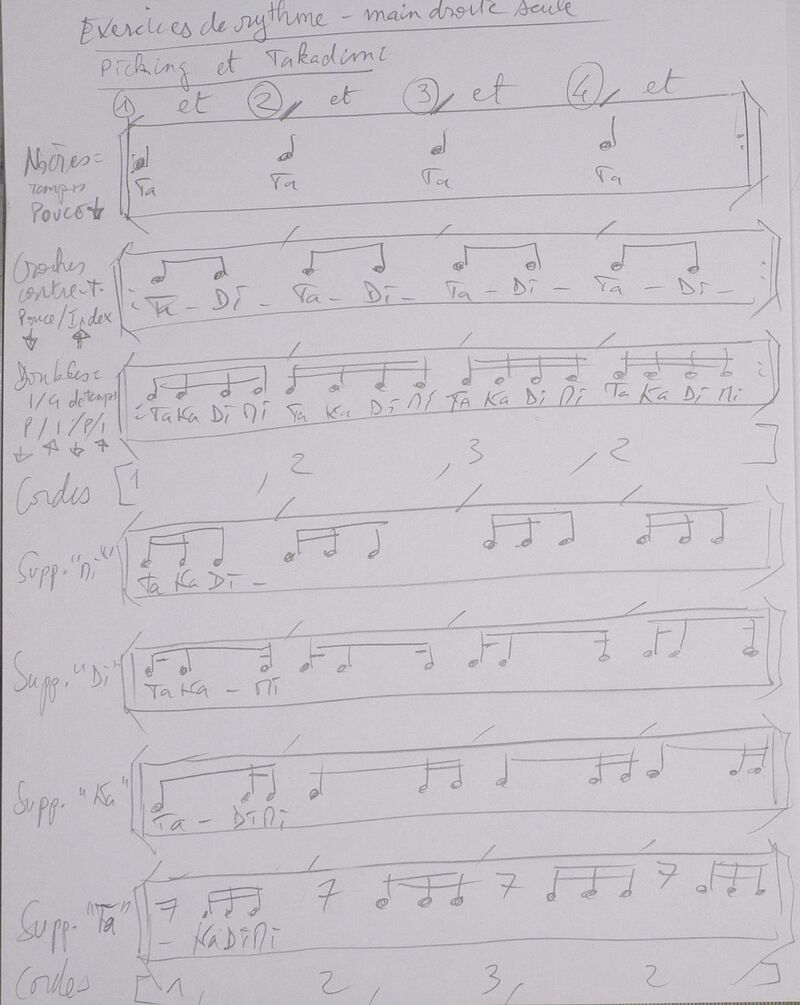 Exercices de rythme - main droite seule
Picking et Takadimi
1 et 2 et 3 et 4 et
Noires =
temps
Pouce ↓
Ta Ta Ta Ta
Croches
contre-t.
Pouce/Index
↓ ↑
Ta - Di - Ta - Di - Ta - Di - Ta - Di -
Doubles =
1/4 de temps
P/I/P/I
↓ ↑ ↓ ↑
Ta Ka Di Mi Ta Ka Di Mi Ta Ka Di Mi Ta Ka Di Mi
Cordes [1 , 2 , 3 , 2 ]
Supp. "Mi"
Ta Ka Di -
Supp. "Di"
Ta Ka - Mi
Supp. "Ka"
Ta - Di Mi
Supp. "Ta"
- Ka Di Mi
Cordes [1, 2, 3, 2 ]